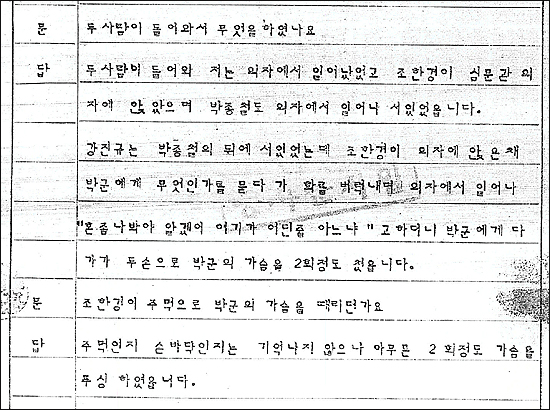 문 두사람이 들어와서 무엇을하였나요
답 두사람이 들어와 저는 의자에서 일어났었고 조한경이 심문관 의
자에 앉았으며 박종철도 의자에서 일어나 서있었읍니다.
강진규는 박종철의 뒤에 서있었는데 조한경이 의자에 앉은채
박군에게 무엇인가를 묻다가 화를 벌컥내며 의자에서 일어나
"혼좀나봐야 알겠어 여기가 어딘줄 아느냐"고하더니 박군에게 다
가가 두손으로 박군의 가슴을 2회정도 쳤읍니다.
문 조한경이 주먹으로 박군의 가슴을 때리던가요
답 주먹인지 손바닥인지는 기억나지 않으나 아무튼 2회정도 가슴을
하였읍니다.